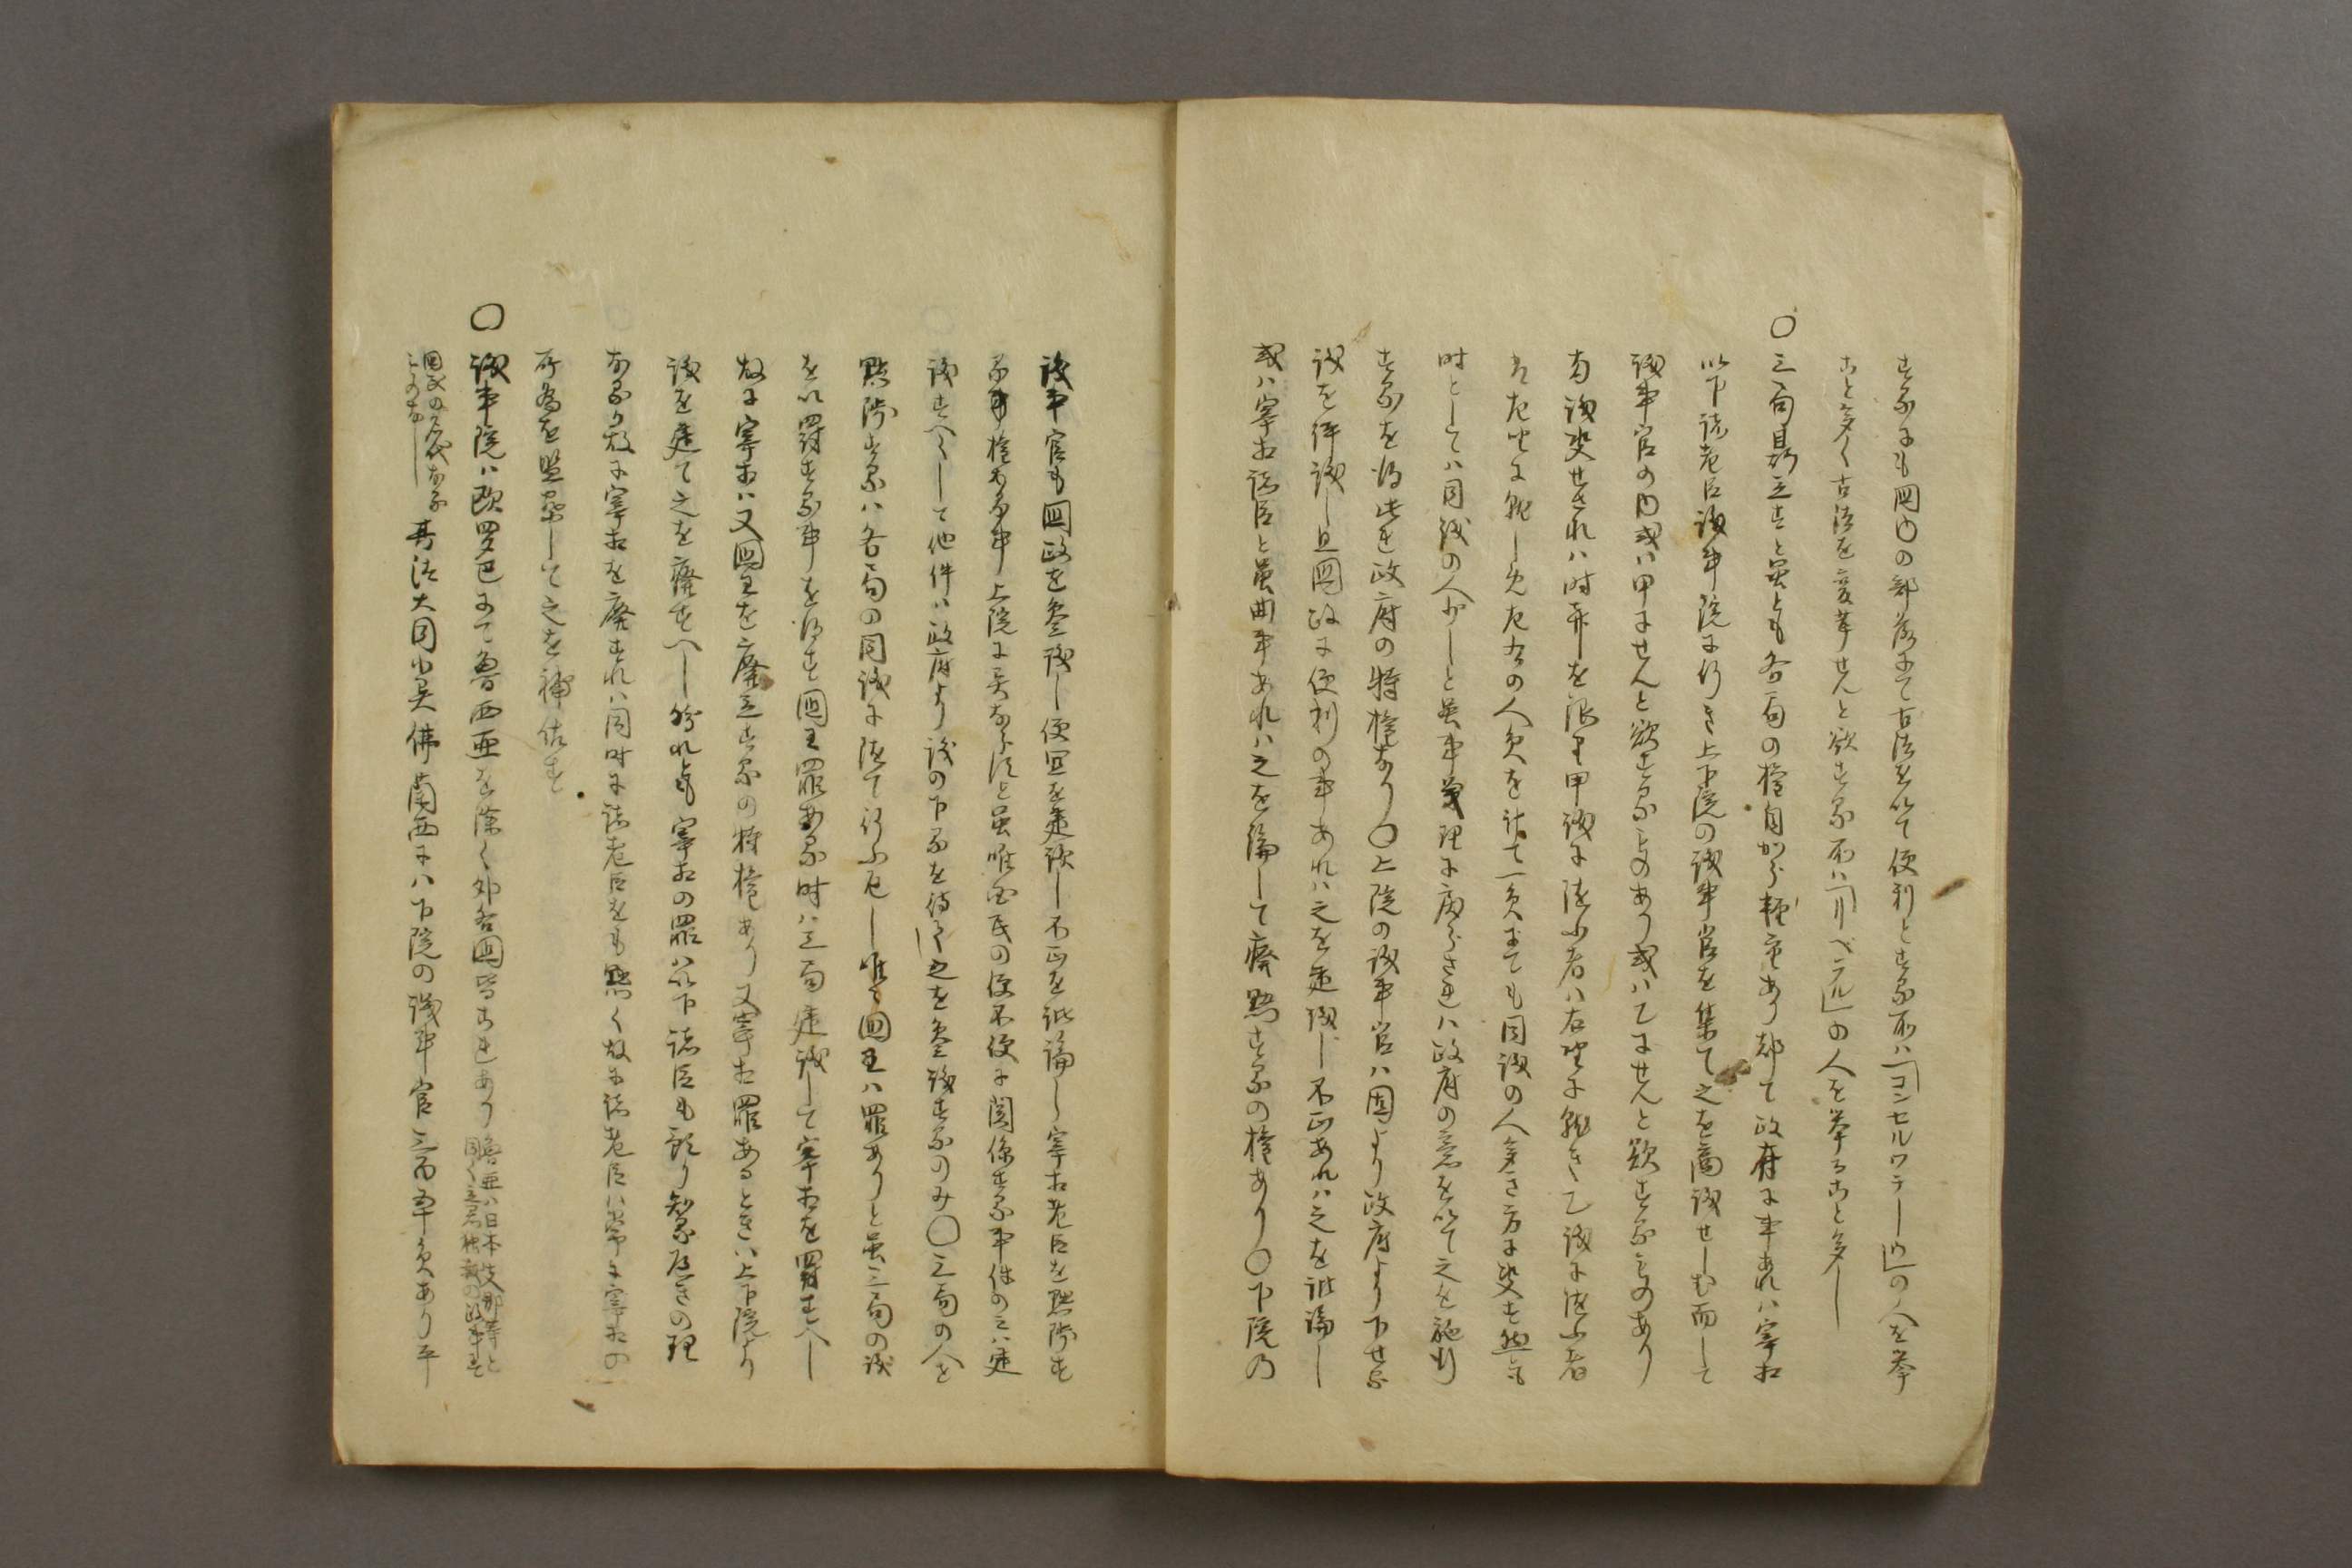 するにも国内の部落にて古法を以て便利とする所ハ「コンセルワテーウ」の人を挙
こと多く古法を変革せんと欲する所ハ「リベラル」の人を挙ること多し
〇三局鼎立すと雖とも各局の権自から軽重あり都て政府に事あれハ宰相
以下諸老臣議事院に行き上下院の議事官を集て之を商議せしむ而して
議事官の内或ハ甲にせんと欲するものあり或ハ乙にせんと欲するものあり
有議決せされハ時于を限り甲議に従ふ者ハ右坐に就き乙議に従ふ者
ハ左坐に就しめ左右の人員を計て一員にても同議の人多き方に決す然とも
時としてハ同議の人少しと雖事理に戻らされハ政府の意を以て之を施行
するを得此を政府の特権なり〇上院の議事官ハ固より政府より下せる
議を評議し且国政に便利の事あれハ之を建議し不正あれハ之を誹論し
或ハ宰相諸臣と雖曲事あれハ之を論して廃黜するの権あり〇下院の
議事官も国政を参議し便宜を建議し不正を誹論し宰相老臣を黜陟す
る事権ある事上院に異ならすと雖唯国民の便不便に関係する事件のミハ建
議すへくして他件ハ政府より議の下るを待て之を参議するのみ〇三局の人を
黜陟するハ各局の同議に従て行ふ也し唯国王ハ罪ありと雖三局の議
を以罰する事を得す国王罪ある時ハ三局建議して宰相を罰すへし
故に宰相ハ又国王を廃立するの特権あり又宰相罪あるときハ上下院より
議を建て之を廃すへし然れとも宰相の罪ハ以下諸臣も預り知る及きの理
なるか故に宰相を廃すれハ同時に諸老臣をも黜く故に諸老臣ハ常に宰相の
所為を監察して之を補佐す
〇議事院ハ欧羅巴にて魯西亜を除く外各国皆これあり魯西亜ハ日本支那等と
同く立君独裁の政事にて
国民の名代なる
ものなし其法大同小異佛蘭西にハ下院の議事官三百五十員あり平